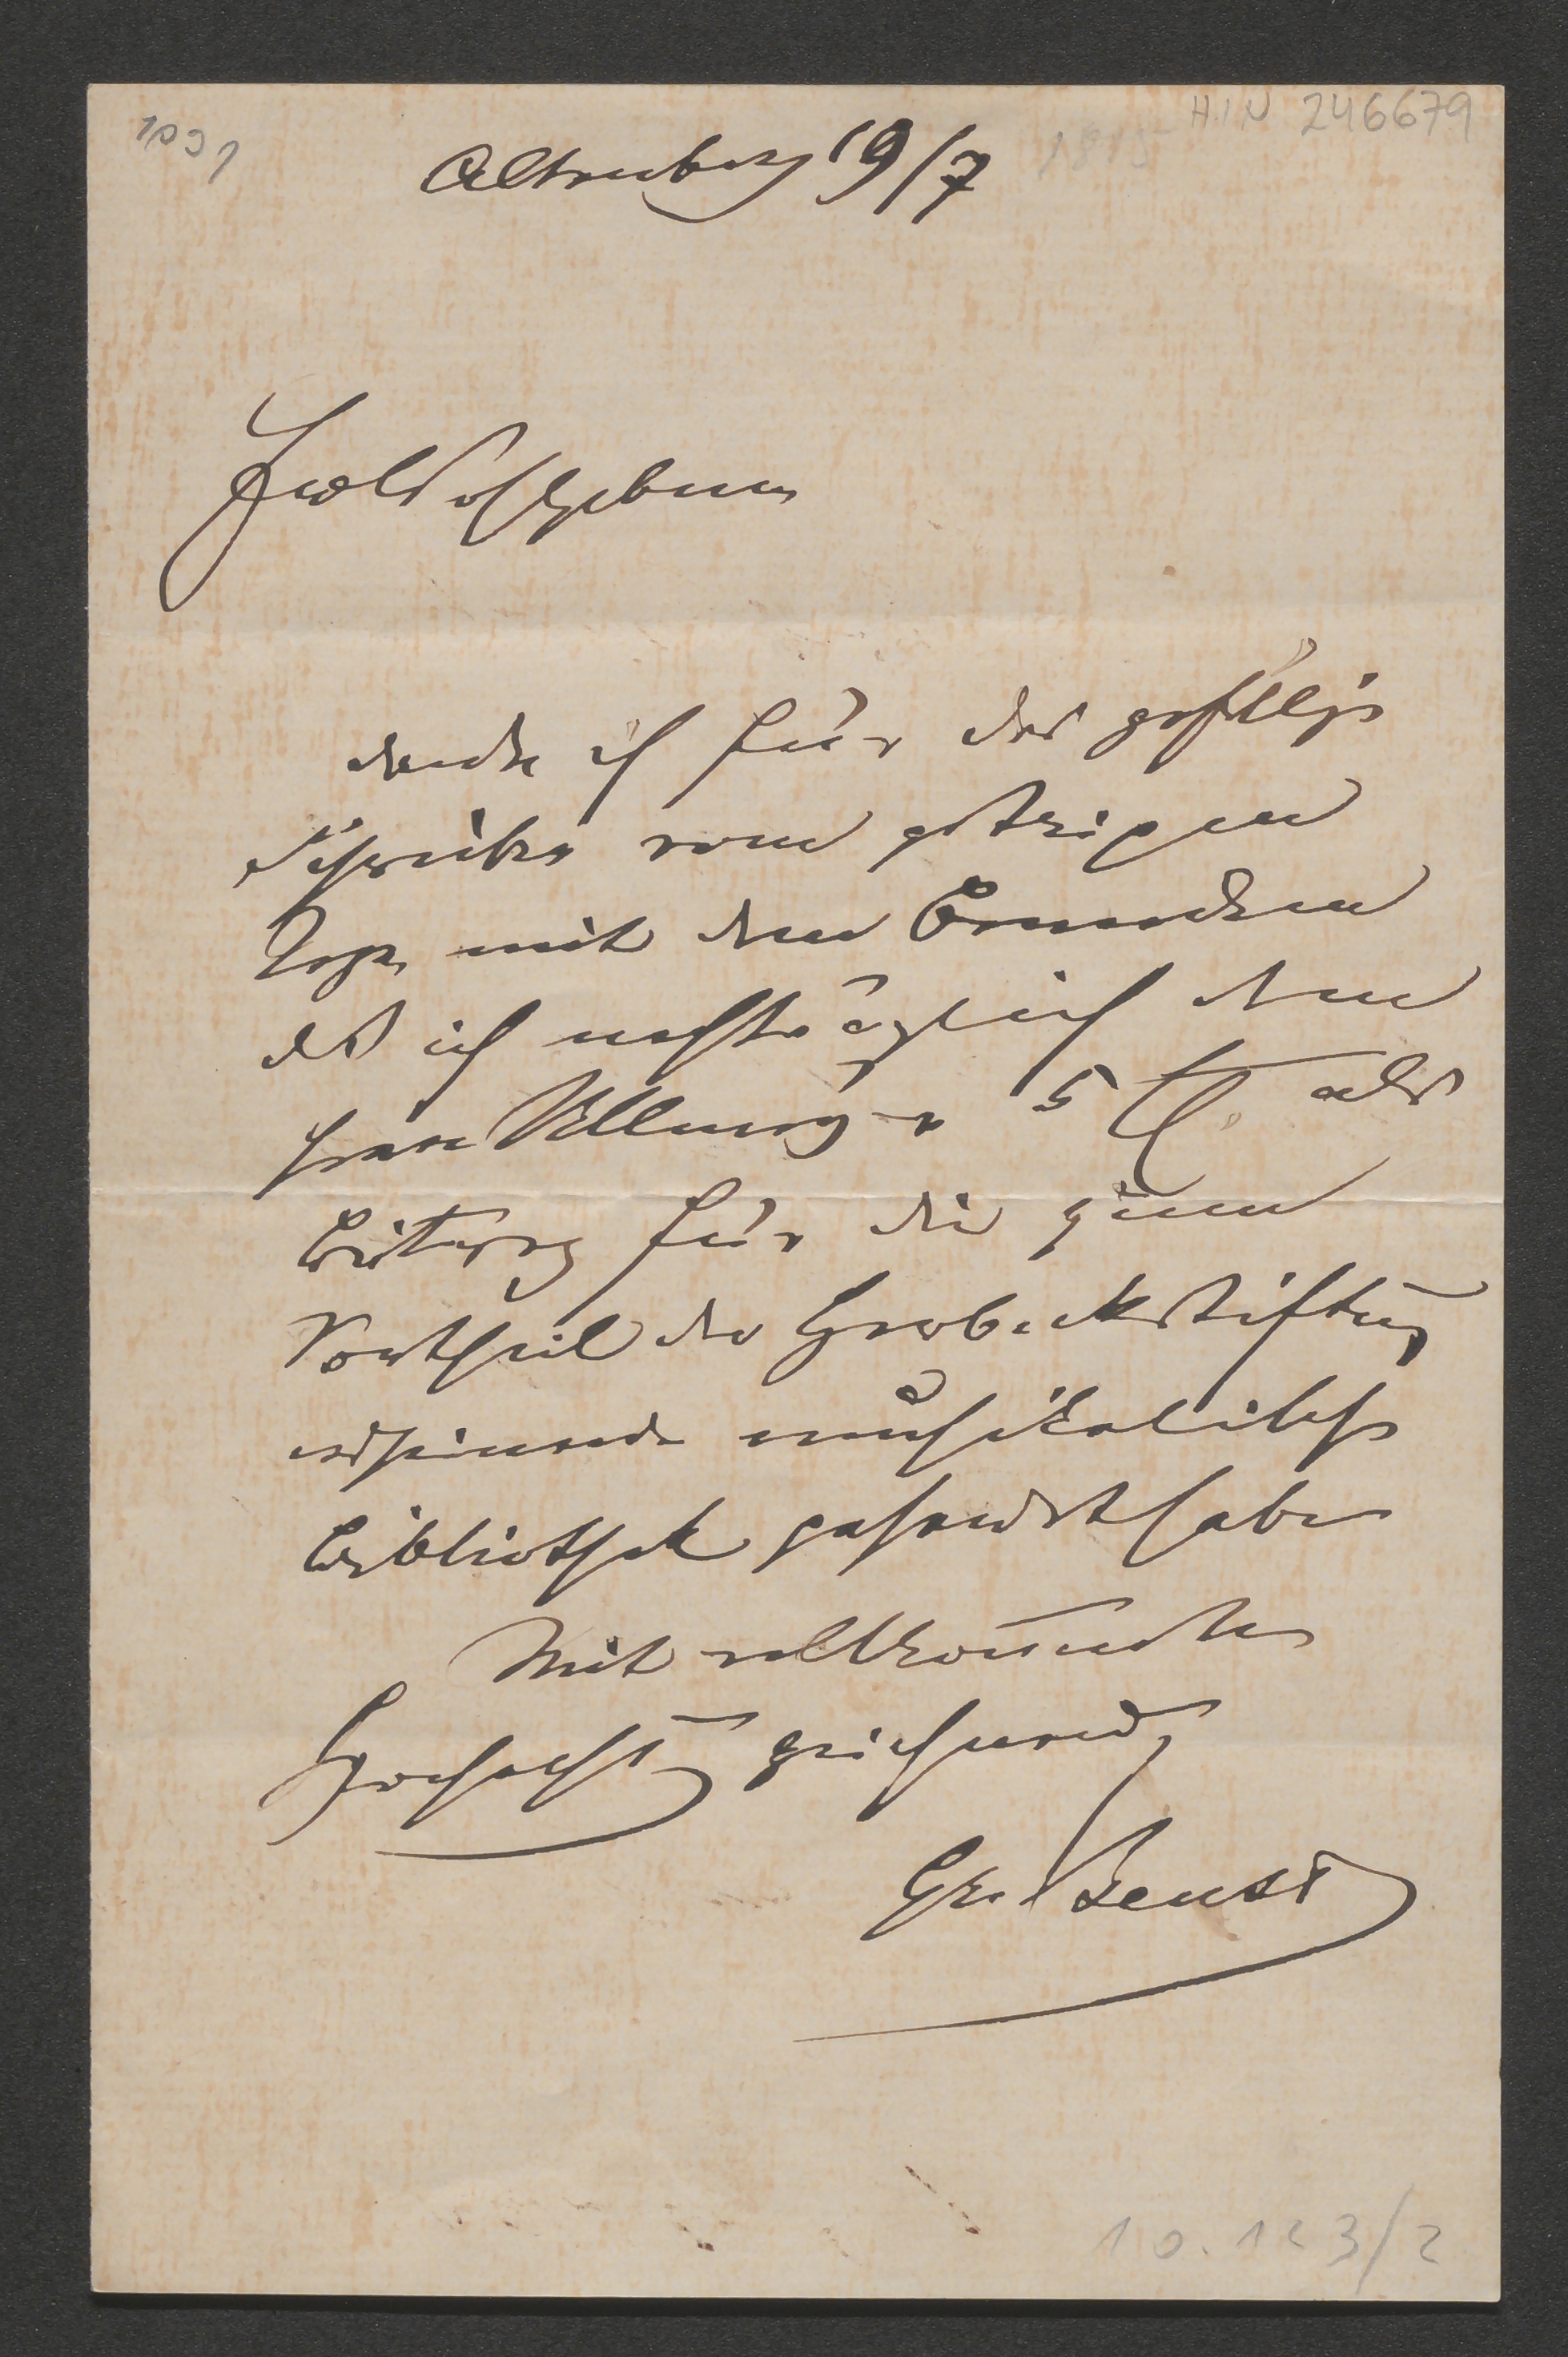 1091
H.I.N 246679
Altenberg 19/7
Euer Wohlgeboren
danke ich für das gefällige
Schreiben vom gestrigen
Tage mit dem Bemerken
daß ich nachträglich dem
5 fl. als
Beitrag für die zum
Vortheil der Grabdenkstiftung
erscheinende musikalische
Bibliothek gesandt habe
Mit vollkommenster
Hochachtung zeichnend
Gr. Beust
10.123/2